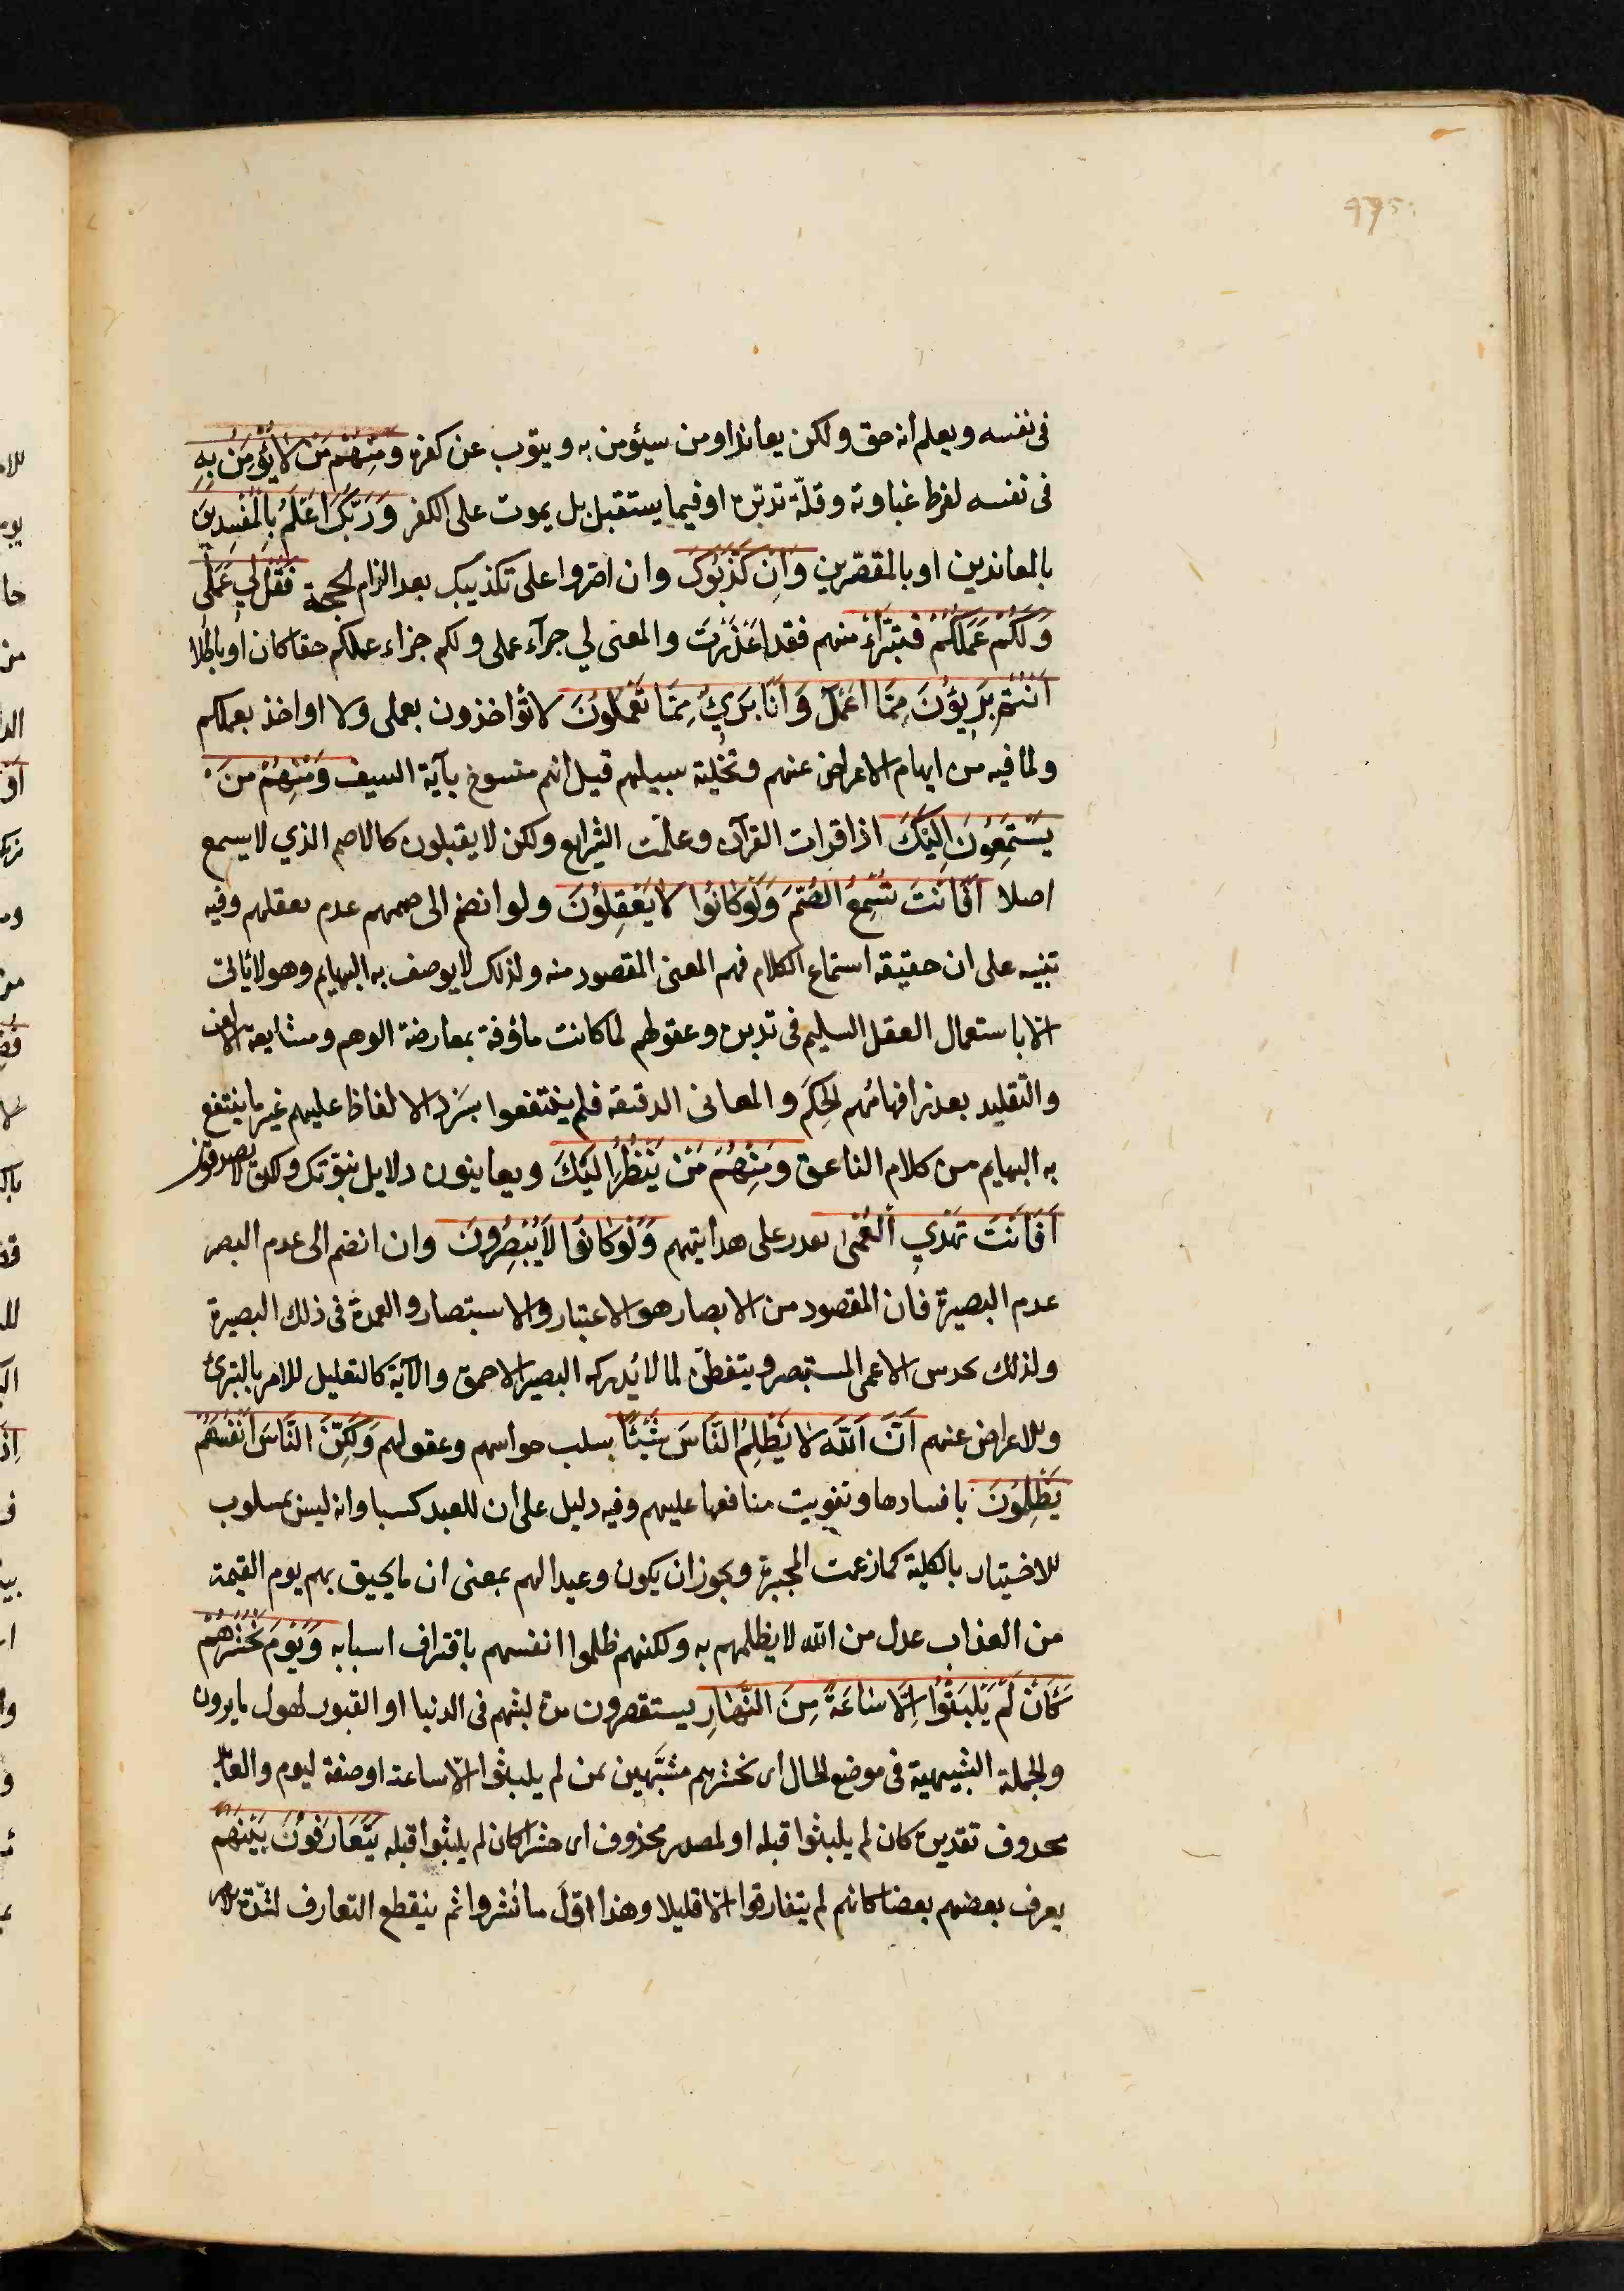 في نفسه ويعلم انه حق ولكن يعاند او من سيؤمن به ويتوب عن كفره وَمِنْهُمْ مَنْ لَا يُؤْمِنُ بِهِ
في نفسه لفرط غباوته وقلّة تدبّره او فيما يستقبل بل يموت على الكفر وَرَبُّكَ اَعْلَمُ بِالْمُفْسِدِينَ
بالمعاندين او بالمقصّرين وَاِن كَذَّبُوكَ وان اصرّوا على تكذيبك بعد الزام الحجة فَقُلْ لِي عَمَلِي
وَلَكُمْ عَمَلُكُمْ فتبرّأ منهم فقد اَعْذَرْتَ والمعنى لي جزآء عملى ولكم جزاء عملكم حقا كان او باطلا
اَنْتُمْ بَرِيؤُنَ مِمَّا اَعْمَلُ وَاَنَا بَرِيٌ مِمَّا تَعْمَلُونَ لا تؤاخذون بعملى ولا اواخذ بعملكم
ولما فيه من ايهام الاعراض عنهم وتخلية سبيلهم قيل انه منسوخ بآية السيف وَمِنْهُمْ مَنْ
يَسْتَمِعُونَ اِلَيْكَ اذا قرات القرآن وعلّمت الشرايع ولكن لا يقبلون كالاصم الذي لا يسمع
اصلا اَفَاَنْتَ تُسْمِعُ الصُّمَّ وَلَوْ كَانُوا لَا يَعْقِلُونَ ولو انضم الى صممهم عدم تعقلهم وفيه
تنبيه على ان حقيقة استماع الكلام فهم المعنى المقصود منه ولذلك لا يوصف به البهايم وهو لا يتاتى
الا باستعمال العقل السليم في تدبره وعقولهم لما كانت مأوفة بمعارضة الوهم ومشايعة الالف
والتقليد تعذر افهامُهم الحِكَم والمعانى الدقيقة فلم ينتفعوا بسَرْد الالفاظ عليهم غير ما ينتفع
به البهايم من كلام الناعق وَمِنْهُمْ مَنْ يَنْظُرُ اِلَيْكَ ويعاينون دلايل نبوّتك ولكن لا يصدقونك
اَفَاَنْتَ تَهْدِي الْعُمْىَ تقدر على هدايتهم وَلَوْ كَانُوا لَا يُبْصِرُونَ وان انضم الى عدم البصر
عدم البصيرة فان المقصود من الابصار هو الاعتبار والاستبصار والعمدة في ذلك البصيرة
ولذلك يحدس الاعمى المستبصر ويتفطّن لما لا يُدركه البصير الاحمق والآية كالتعليل للامر بالتبرئ
وللاعراض عنهم اَنَّ اللّٰهَ لَا يَظْلِمُ النَّاسَ شَيْئًا بسلب حواسهم وعقولهم وَلَكِنَّ النَّاسَ اَنْفُسَهُمْ
يَظْلِمُونَ بافسادها وتفويت منافعها عليهم وفيه دليل على ان للعبد كسبا وانه ليس بمسلوب
للاختيار بالكلية كما زعمت المجبرة ويجوز ان يكون وعيدا لهم بمعنى ان ما يحيق بهم يوم القيمة
من العذاب عدل من الله لا يظلمهم به ولكنهم ظلموا انفسهم باقتراف اسبابه وَيَوْمَ نَحْشُرُهُمْ
كَاَنْ لَمْ يَلْبَثُوا اِلَّا سَاعَةً مِنَ النَّهَارِ يستقصرون مدة لبثهم في الدنيا او القبور لهول ما يرون
والجملة التشبيهية في موضع الحال اى نحشرهم مشبّهين بمن لم يلبثوا الّا ساعة او صفة ليوم والعائد
محذوف تقديره كان لم يلبثوا قبله او لمصدر محذوف اى حشرا كان لم يلبثوا قبله يَتَعَارَفُونَ بَيْنَهُمْ
يعرف بعضهم بعضا كانهم لم يتفارقوا الا قليلا وهذا اوّلَ ما نُشروا ثم ينقطع التعارف لشدّة الامر